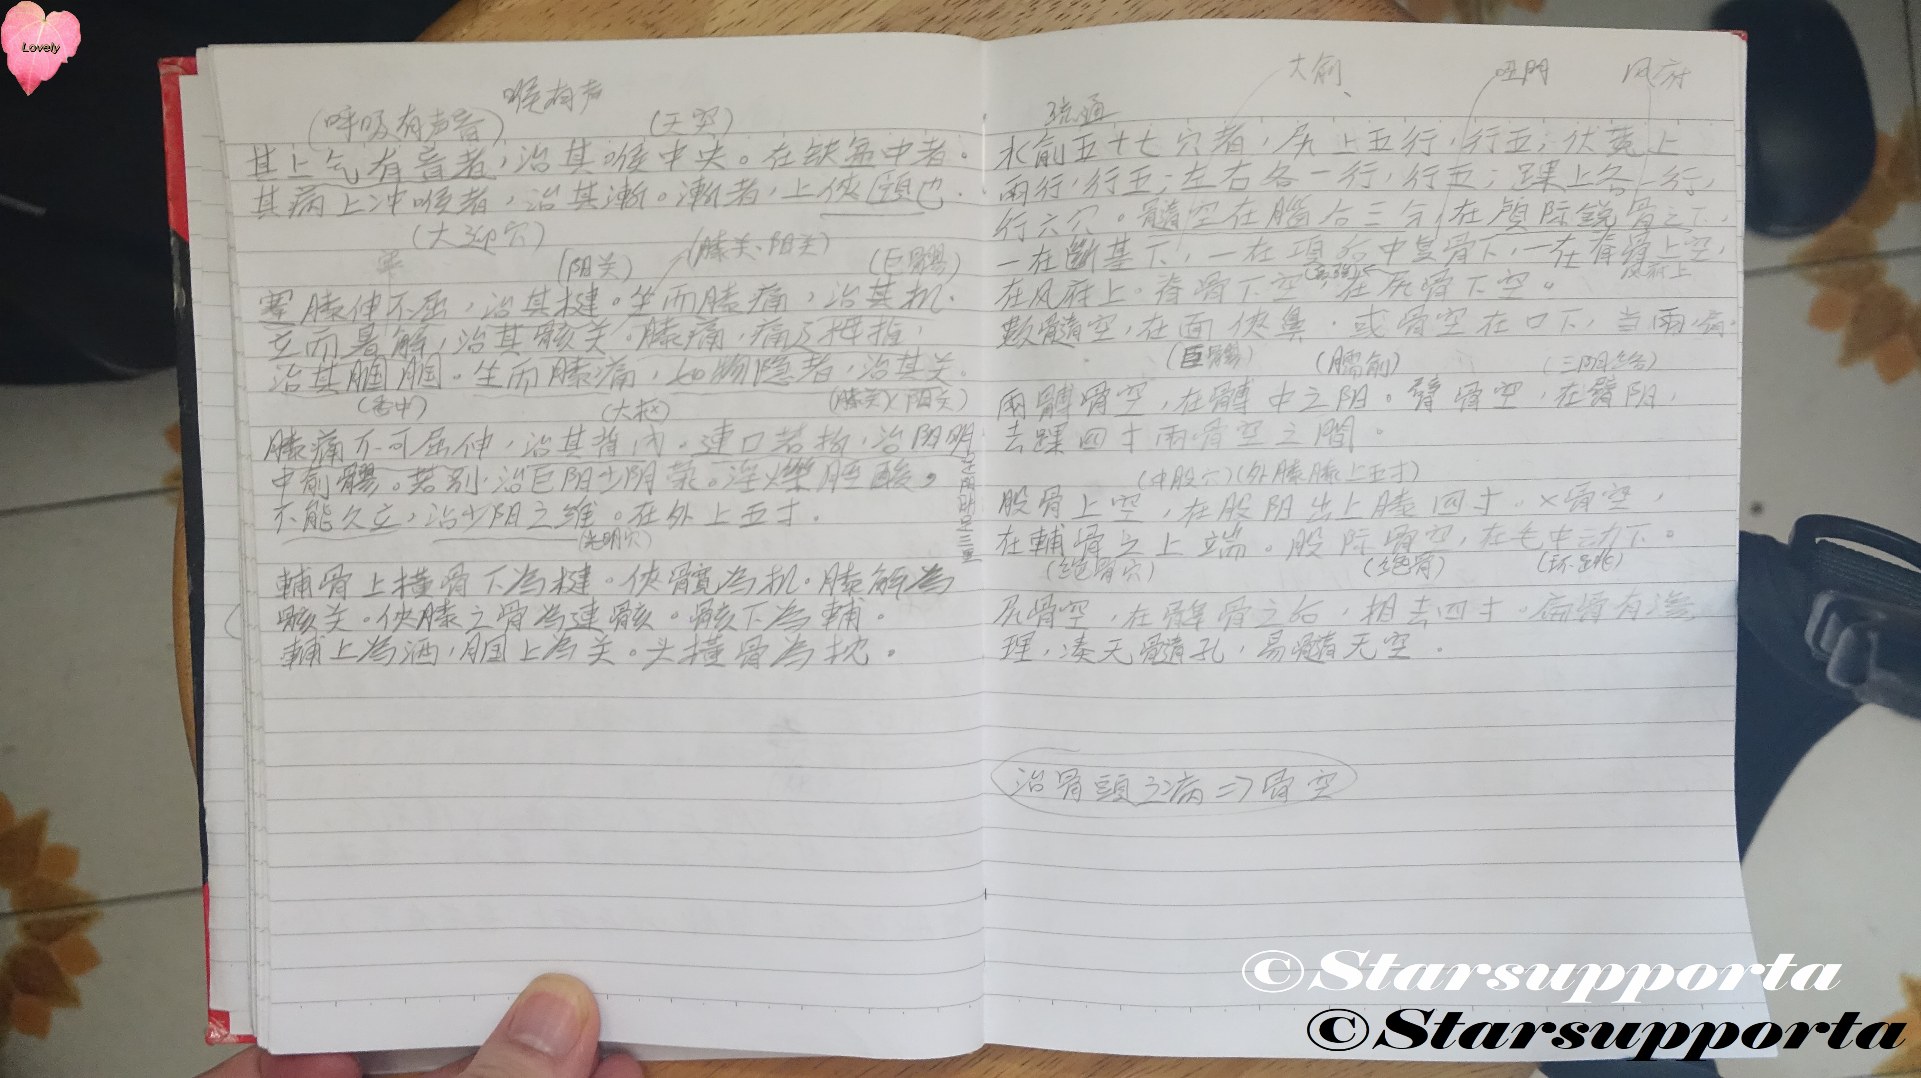 Lovely
喉有声
(呼吸有声音) (天突)
其上气有音者，治其喉中央。在缺盆中者。
其病上冲喉者，治其渐。漸者，上侠頤也.
(大迎穴)
(膝关、阳关)
(阳关) (巨髎)
蹇膝伸不屈，治其楗。坐而膝痛，治其机.
立而暑解，治其骸关.膝痛，痛及拇指，
治其膕.坐而膝痛，如物隐者，治其关.
(委中) (大杼) (膝关)(阳关)
膝痛不可屈伸，治其背内.連 若折，治阳明
中俞髎。若别.治巨阳少阴荥。淫濼脛酸，
不能久立，治少阳之維。在外上五寸.
(光明穴)
輔骨上横骨下為楗。侠髖為机.膝解為
骸关.侠膝之骨為連骸。骸下為輔.
輔上為 ，膕上為关.头横骨為枕.
大俞 哑門 风府
疏通
水俞五十七穴者，尻上五行，行五；伏菟上
兩行，行五；左右各一行，行五；踝上各一行，
行六穴.髓空在腦后三分，在顱际銳骨之下，
一在斷基下，一在項后中复骨下，一在脊骨上空，
在风府上.脊骨下空，在尻骨下空。
风府上
數髓空，在面侠鼻.或骨空在口下，当兩肩.
(巨髎) (臑俞) (三阴络)
兩髆骨空，在髆中之阳。臂骨空，在臂阳，
去踝四寸兩骨空之間.
(中股穴)(外膝膝上五寸)
股骨上空，在股阳出上膝四寸.×骨空，
在輔骨之上端.股际骨空，在毛中动下。
(绝骨穴) (绝骨) (环跳)
尻骨空，在髀骨之后，相去四寸.扁骨有滲
理，凑无髓孔，易髓无空.
治骨頭之病=>骨空
©Starsupporta
©Starsupporta